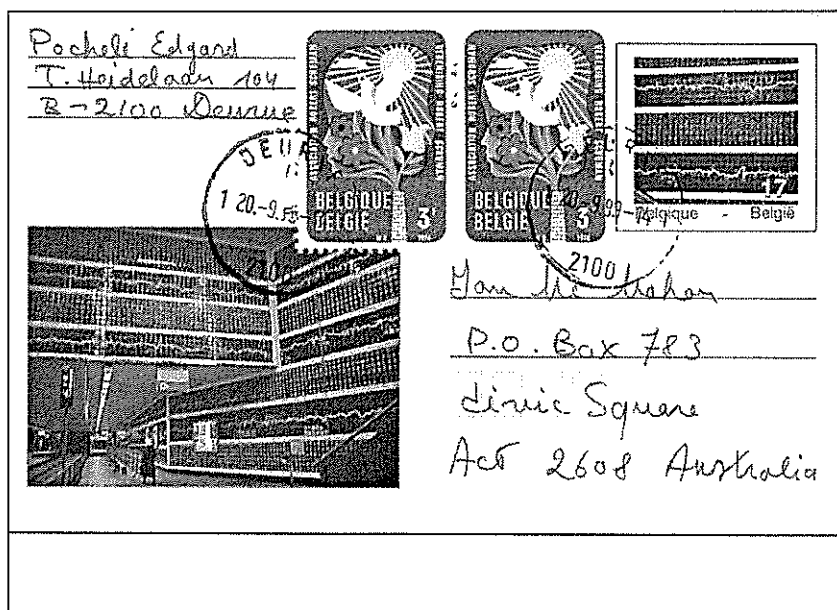 Pocheli Edgard
T. Heidelaan 104
B-2100 Deurne
BELGIQUE
BELGIË
3F
BELGIQUE
BELGIË
3F
17
Belgique - België
DEUR
1 20.-9.
2100
1 20.-9.99-
2100
P.O. Box 783
Civic Square
Act 2608 Australia